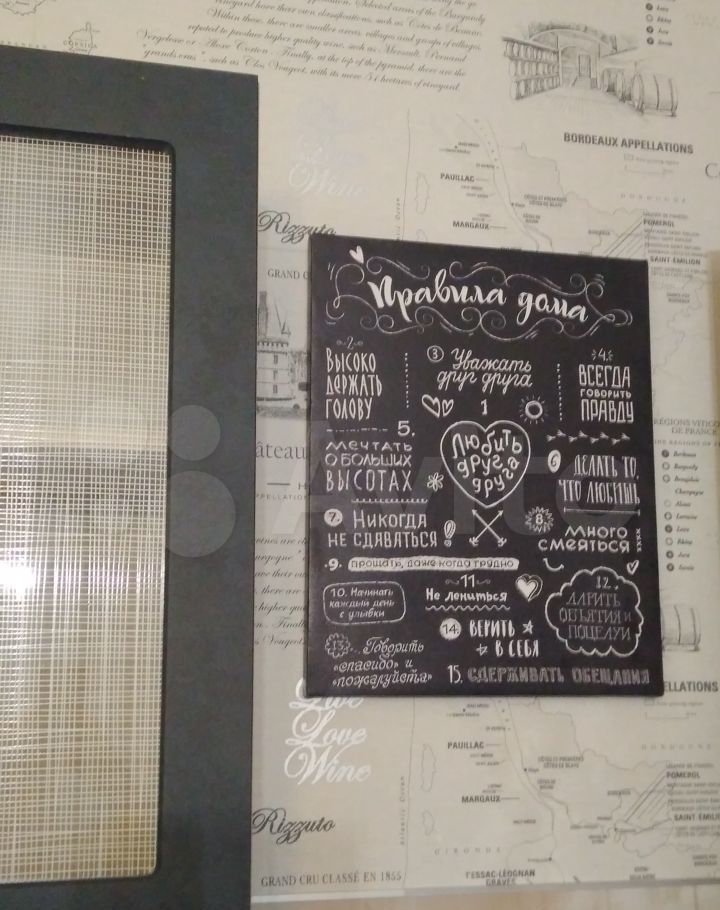 vineyard have their own classifications, such as Côtes de Beaune.
Within these, there are smaller areas, villages and groups of villages,
reputed to produce higher quality wine, such as Mersault, Pernand
Vergelesse or - Aloxe Corton - Finally, at the top of the pyramid, there are the
"grands crus," such as Clos Vougeot, with its more 51 hectares of vineyard.
BORDEAUX APPELLATIONS
PAUILLAC
MARGAUX
POMERGL
SAINT ÉMILION
Love
Wine
Rizzuto
GRAND C
Правила дома
2.
ВЫСОКО
ДЕРЖАТЬ
ГОЛОВУ
3 Уважать
друг друга
4.
ВСЕГДА
ГОВОРИТЬ
ПРАВДУ
1
Любить
друг
друга
5.
МЕЧТАТЬ
О БОЛЬШИХ
ВЫСОТАХ
6 ДЕЛАТЬ ТО,
ЧТО ЛЮБИШЬ
7. НИКОГДА
НЕ СДАВАТЬСЯ!
8.
МНОГО
СМЕЯТЬСЯ
9. ПРОЩАТЬ, ДАЖЕ КОГДА ТРУДНО
10. Начинать
каждый день
с улыбки
11
Не лениться
12.
ДАРИТЬ
ОБЪЯТИЯ И
ПОЦЕЛУИ
13. Говорить
«спасибо» и
«пожалуйста»
14. ВЕРИТЬ
В СЕБЯ
15. СДЕРЖИВАТЬ ОБЕЩАНИЯ
RÉGIONS VITICO
DE FRANCE
Bordeaux
Burgundy
Beaujolais
Champagne
Alsace
Lorraine
Loire
Jura
Savoie
Avito
Live
Love
Wine
Rizzuto
GRAND CRU CLASSÉ EN 1855
ELLATIONS
PAUILLAC
MARGAUX
POMERGL
SAINT ÉMIL
GIRONDE
PESSAC-LÉOGNAN
GRAVES